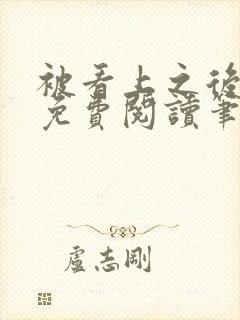 被看上之後
免費閱讀筆
盧志剛